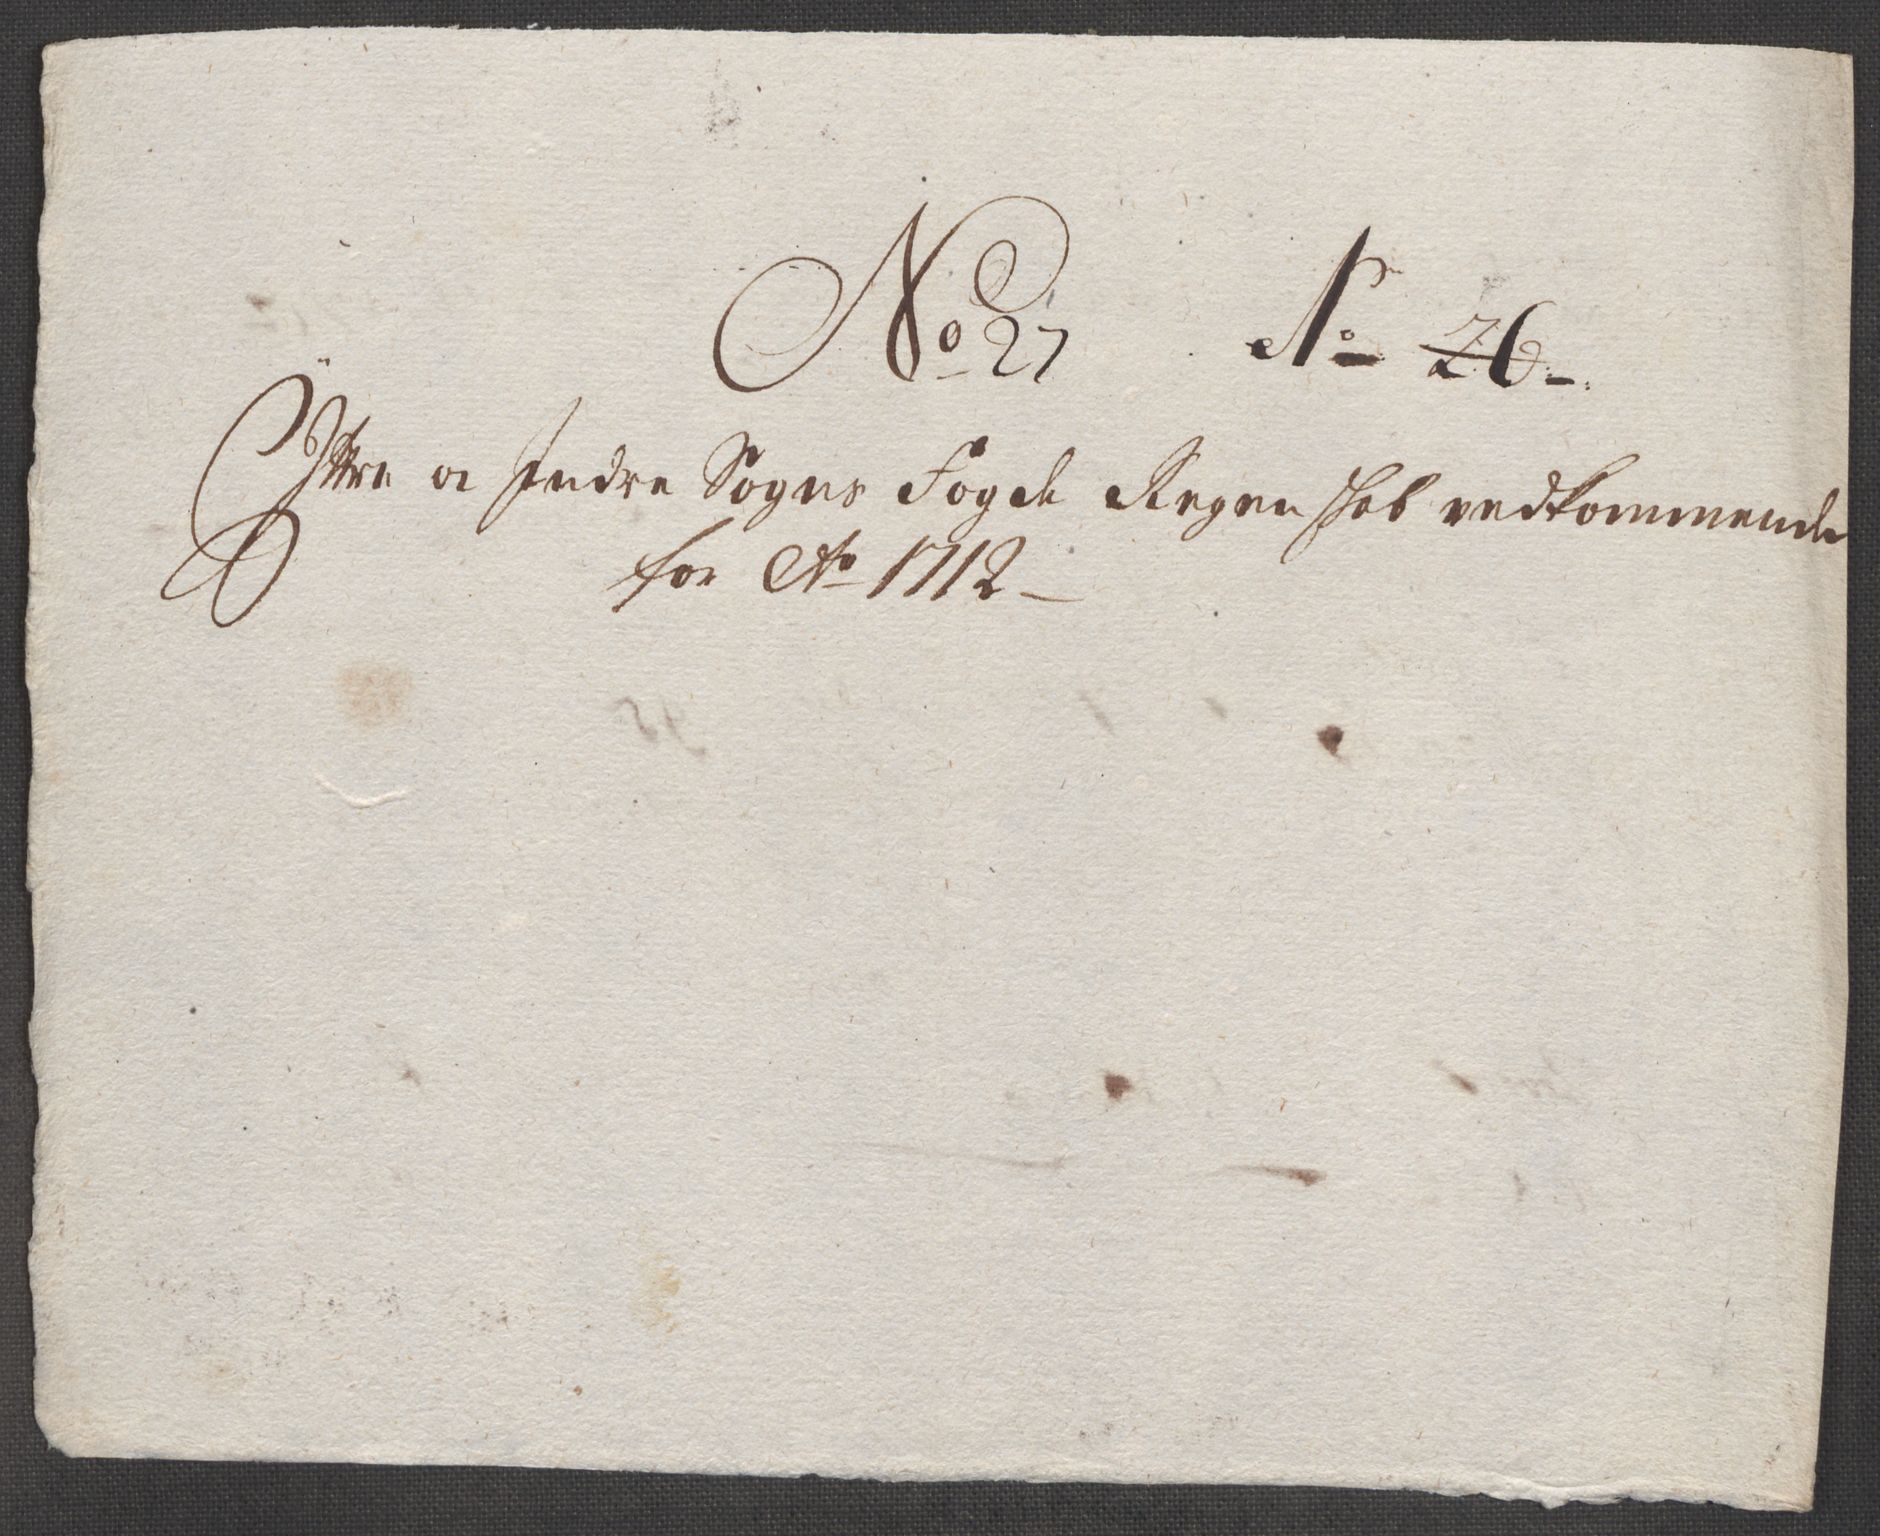 No 27 No 26
Ÿttre oc Indre Sogns Fogde Regenskab vedkommende
for Ao 1712